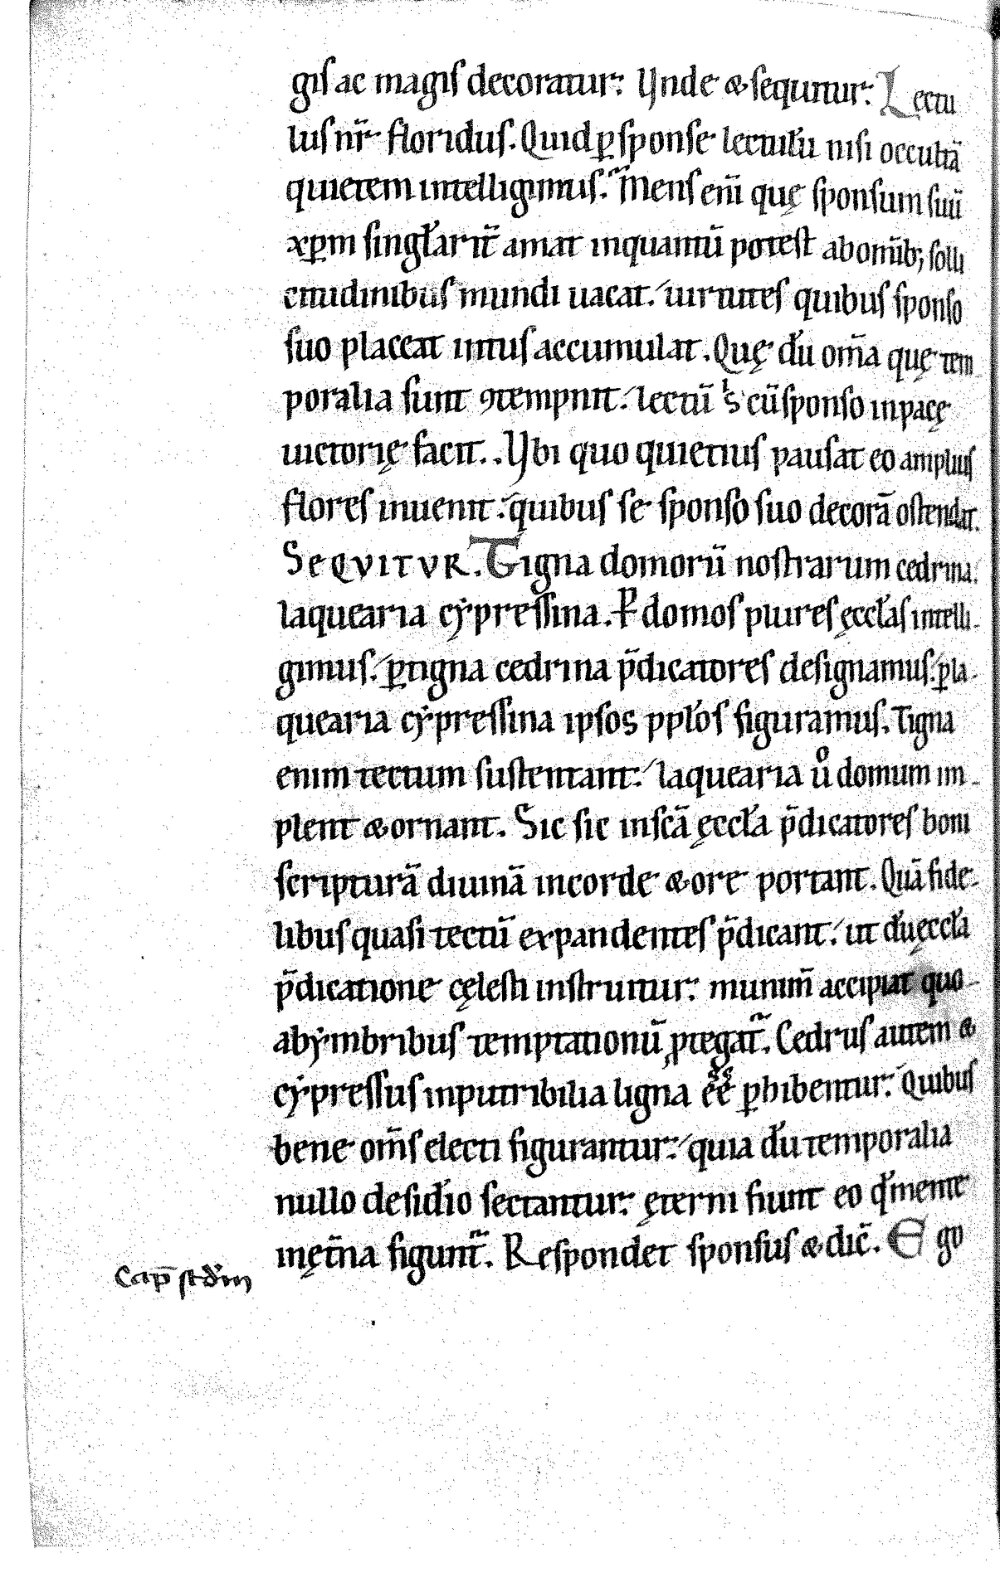 gis ac magis decoratur. Vnde & sequitur. Lectu
lus nr̄ floridus. Quid ꝑ sponse lectulū nisi occultā
quietem intelligimus. Mens enī quę sponsum suū
xp̄m singl̄arit̄ amat inquantū potest ab omīb; solli
citudinibus mundi uacat. uirtutes quibus sponso
suo placeat intus accumulat. Quę dū om̄a quę tem
poralia sunt ꝯtempnit. lectū s; cū sponso in pacę
uictorię facit. Vbi quo quietius pausat eo amplius
flores inuenit. quibus se sponso suo decorā ostendat.
SEQVITVR. Tigna domorū nostrarum cedrina.
laquearia cẏpressina. P domos plures ęccl̄as intelli-
gimus. ꝑ tigna cedrina p̄dicatores designamus. ꝑ la-
quearia cẏpressina ipsos ppl̄os figuramus. Tigna
enim tectum sustentant. laquearia ů domum im-
plent & ornant. Sic sic in scā ęccl̄a p̄dicatores boni
scripturā diuinā in corde & ore portant. Quā fide-
libus quasi tectū expandentes p̄dicant. ut dū ęccl̄a
p̄dicatione cęlesti instruitur. munim̄ accipiat quo
ab ẏmbribus temptationū ꝓtegat̄. Cedrus autem &
cẏpressus inputribilia ligna ēē ꝑhibentur. Quibus
bene om̄s electi figurantur. quia dū temporalia
nullo desid̄io sectantur. ęterni fiunt eo qd̄ mente
in ęt̄na figunt̄. Respondet sponsus & dic̄. Ego
Cap̄ sc̄dm